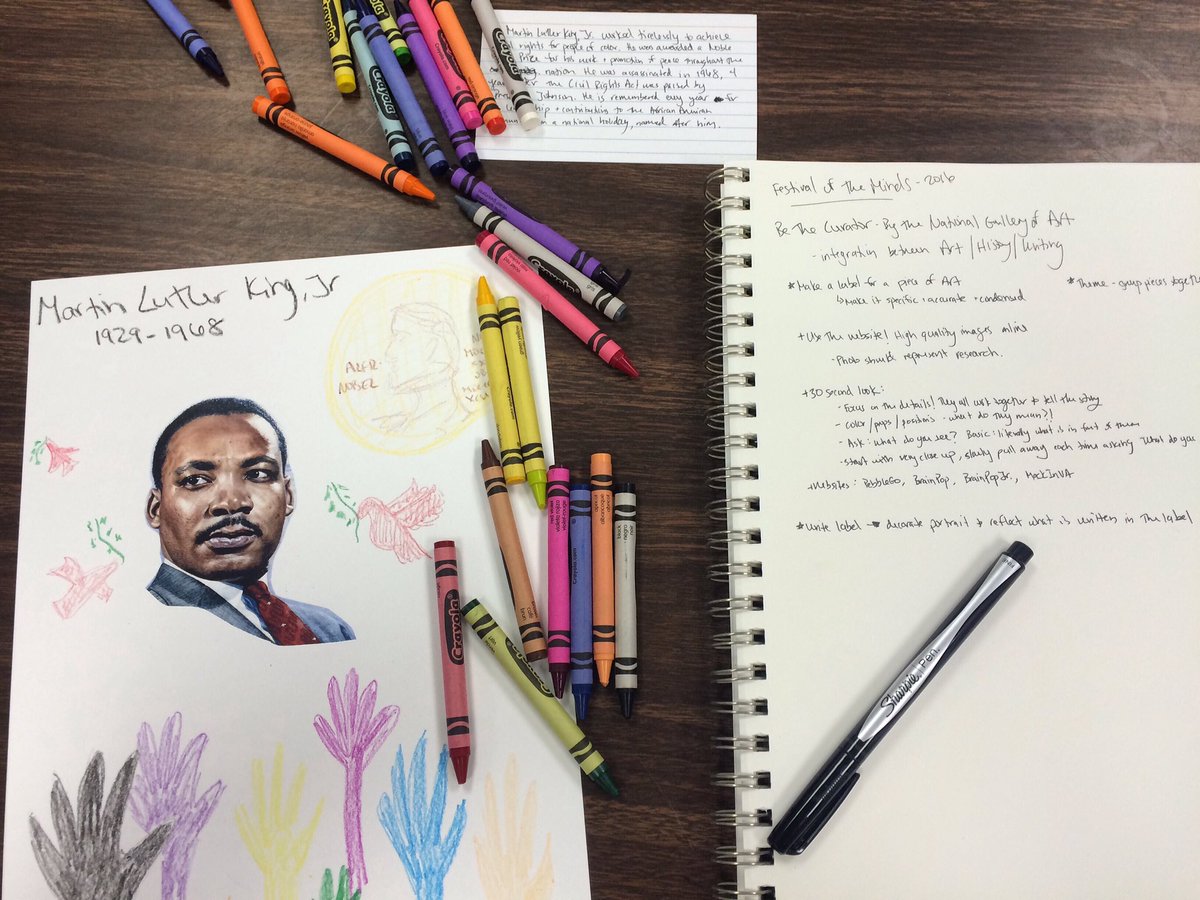 Martin Luther King, Jr. worked tirelessly to achieve
rights for people of color. He was awarded a Noble
Prize for his work + promotion of peace throughout the
nation. He was assassinated in 1968, 4
the Civil Rights Act was passed by
Johnson. He is remembered every year for
+ contributions to the African American
in a national holiday, named after him.
Martin Luther King, Jr
1929-1968
ALFR.
NOBEL
Festival of the Minds - 2016
Be The Curator - By the National Gallery of Art
- integration between Art / History / Writing
*Make a label for a piece of Art
↳ Make it specific + accurate + condensed
*Theme - group pieces together
+ Use the website! High quality images online
- Photo should represent research.
+30 second look:
- Focus on the details! They all work together to tell the story
- Color / props / positions - what do they mean?!
- Ask: what do you see? Basic: literally what is in front of them
- start with very close up, slowly pull away each time asking What do you
+Websites: PebbleGo, BrainPop, BrainPopJr., MackInVA
*Write label → decorate portrait to reflect what is written in the label
Sharpie Pen.
Crayola
Crayola
Crayola
Crayola
Crayola